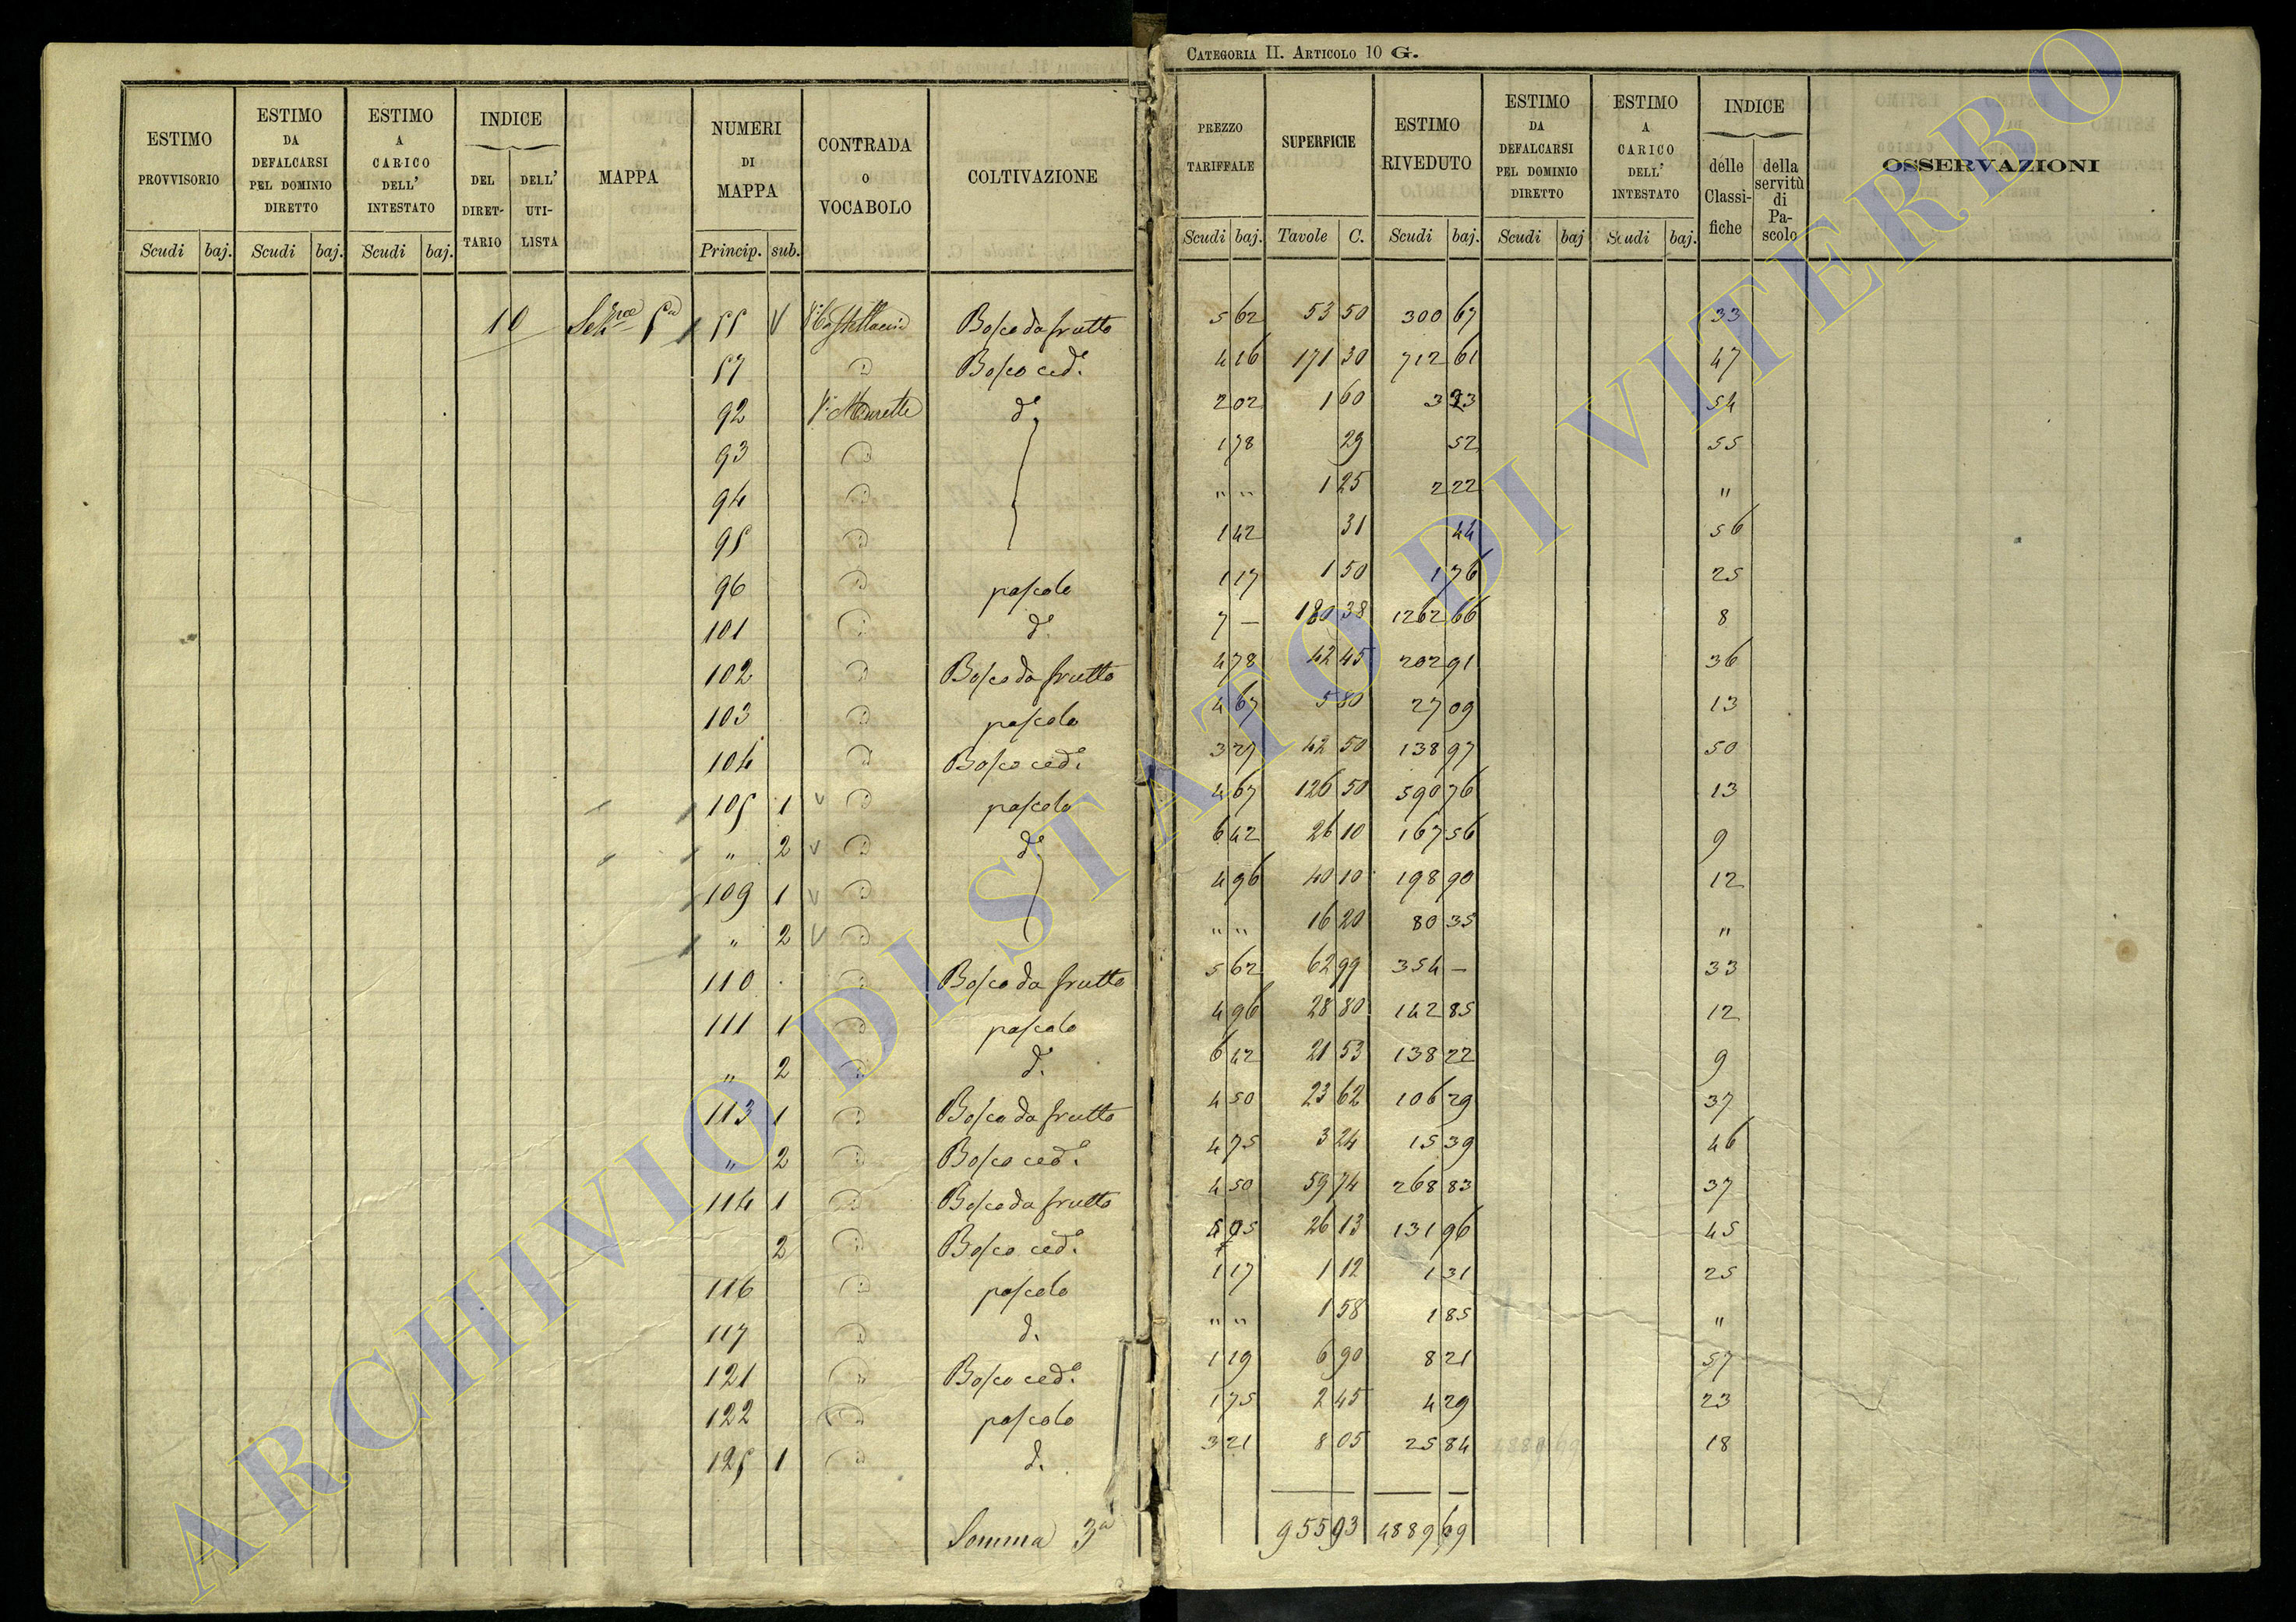 CATEGORIA II. ARTICOLO 10 G.
ESTIMO PROVVISORIO | ESTIMO DA DEFALCARSI PEL DOMINIO DIRETTO | ESTIMO A CARICO DELL' INTESTATO | INDICE DEL DIRETTARIO | DELL' UTILISTA | MAPPA | NUMERI DI MAPPA | CONTRADA O VOCABOLO | COLTIVAZIONE | PREZZO TARIFFALE | SUPERFICIE | ESTIMO RIVEDUTO | ESTIMO DA DEFALCARSI PEL DOMINIO DIRETTO | ESTIMO A CARICO DELL' INTESTATO | INDICE delle Classifiche | della servitù di Pascolo | OSSERVAZIONI
Scudi baj. | Scudi baj. | Scudi baj. | Princip. sub. | Scudi baj. | Tavole C. | Scudi baj. | Scudi baj | Scudi baj.
10 Sezne 5a 55 V Bosco da frutto 5 62 53 50 300 67 33
57 " Bosco ced. 4 16 171 30 712 61 47
92 do 2 02 1 60 3 23 54
93 " 1 78 29 52 55
94 " " " 1 25 2 22 "
95 " 1 42 31 44 56
96 " pascolo 1 17 1 50 1 76 25
101 " do 7 — 180 38 1262 66 8
102 " Bosco da frutto 4 78 42 45 202 91 36
103 " pascolo 4 67 5 80 27 09 13
104 " Bosco ced. 3 27 42 50 138 97 50
105 1 V " pascolo 4 67 126 50 590 76 13
" 2 V " do 6 42 26 10 167 56 9
109 1 V " 4 96 40 10 198 90 12
" 2 V " " " 16 20 80 35 "
110 " Bosco da frutto 5 62 62 99 354 — 33
111 1 " pascolo 4 96 28 80 142 85 12
" 2 " do 6 42 21 53 138 22 9
113 1 " Bosco da frutto 4 50 23 62 106 29 37
" 2 " Bosco ced. 4 75 3 24 15 39 46
114 1 " Bosco da frutto 4 50 59 74 268 83 37
2 " Bosco ced. 5 05 26 13 131 96 45
116 " pascolo 1 17 1 12 1 31 25
117 " d. " " 1 58 1 85 "
121 " Bosco ced. 1 19 6 90 8 21 57
122 " pascolo 1 75 2 45 4 29 23
125 1 " d. 3 21 8 05 25 84 18
Somma 3a 955 93 4889 69
ARCHIVIO DI STATO DI VITERBO